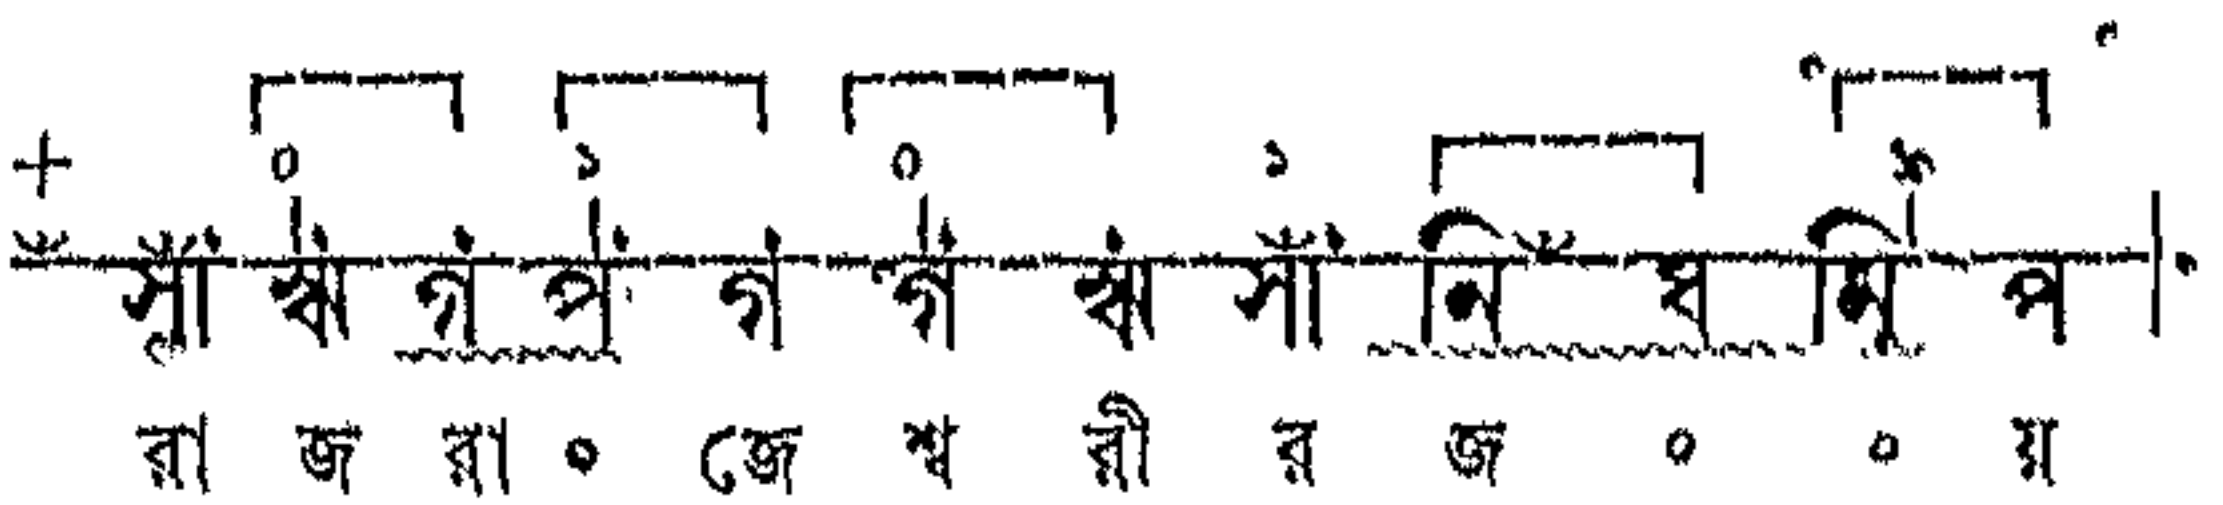 + ০ ১ ০ ১
সাঁ ঋ গ প গ গ ঋ সাঁ নি ধ নি প
রা জ রা ০ জে শ্ব রী র জ ০ ০ য়